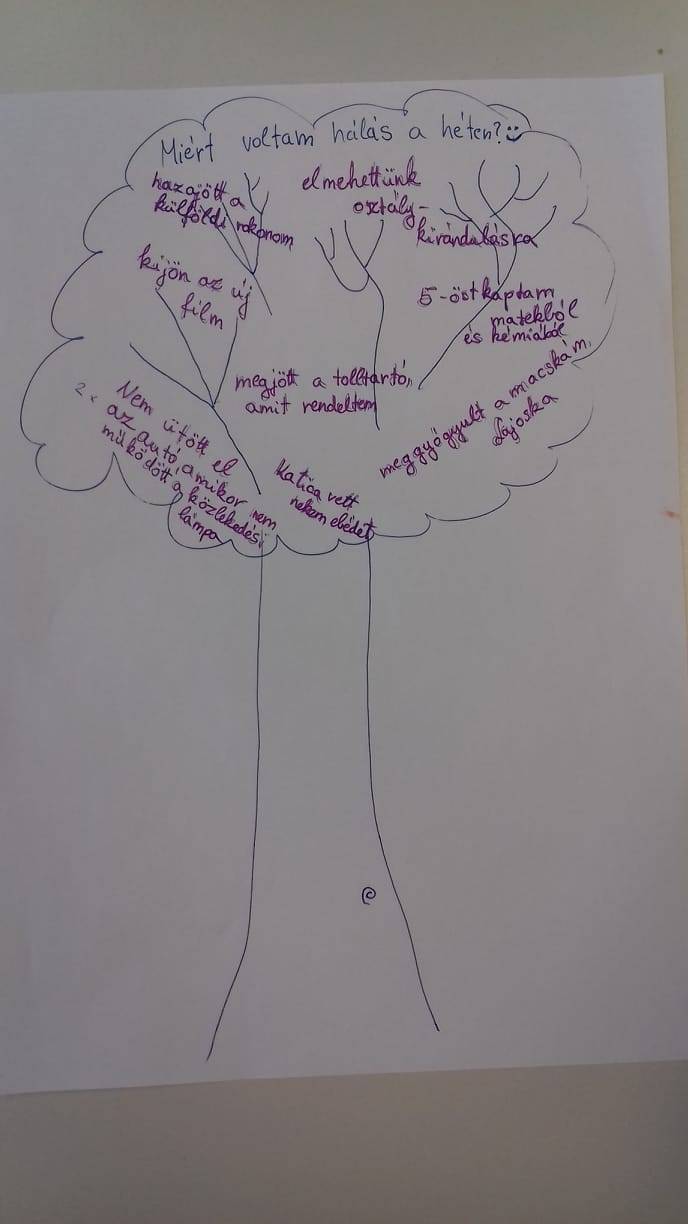 Miért voltam hálás a héten? :)
hazajött a
külföldi rokonom
elmehettünk
osztály-
kirándulásra
kijön az új
film
5-öst kaptam
matekból
és kémiából
megjött a tolltartó,
amit rendeltem
meggyógyult a miacskám,
Lajoska
2x
Nem ütött el
az autó, amikor nem
működött a közlekedési
lámpa
Katica vett
nekem ebédet